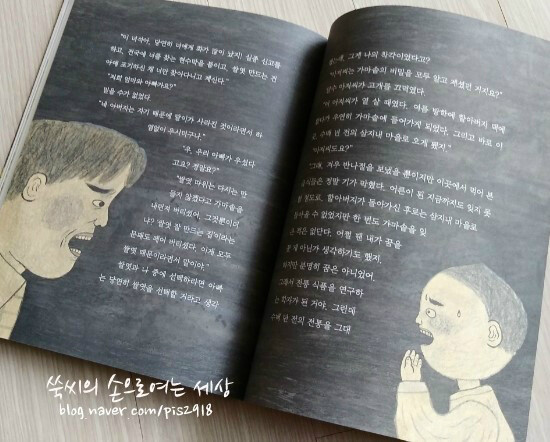 "이 녀석아, 당연히 너에게 화가 많이 났지! 실종 신고를
하고, 전국에 너를 찾는 현수막을 붙이고, 쌀엿 만드는 건
아예 포기하신 채 너만 찾아다니고 계신다."
"저희 엄마와 아빠가요?"
믿을 수가 없었다.
"네 아버지는 자기 때문에 말이가 사라진 것이라면서 하
염없이 우시더구나."
"우, 우리 아빠가 우셨다
고요? 정말요?"
"쌀엿 따위는 다시는 만
들지 않겠다고 가마솥을
내던져 버리셨어. 그것뿐이더
냐? 쌀엿 잘 만드는 집이라는
문패도 떼어 버리셨다. 이게 모두
쌀엿 때문이라면서 말이야."
쌀엿과 나 중에 선택하라면 아빠
는 당연히 쌀엿을 선택할 거라고 생각
그게 나의 착각이었다고?
가마솥의 비밀을 모두 알고 계셨던 거지요?"
아저씨가 고개를 끄덕였다.
아저씨가 열 살 때였다. 여름 방학에 할아버지 댁에
우연히 가마솥에 들어가게 되었다. 그리고 바로 이
수백 년 전의 삼지내 마을로 오게 됐지."
겨우 반나절을 보냈을 뿐이지만 이곳에서 먹어 본
정말 기가 막혔다. 어른이 된 지금까지도 잊지 못
할아버지가 돌아가신 후로는 삼지내 마을로
수 없었지만 한 번도 가마솥을 잊
은 적은 없단다. 어쩔 땐 내가 꿈을
아닌가 생각하기도 했지.
하지만 분명히 꿈은 아니었어.
그래서 전통 식품을 연구하
된 거야. 그런데
수백 년 전의 전통을 그대
쑥씨의 손으로여는 세상
blog.naver.com/pis2918